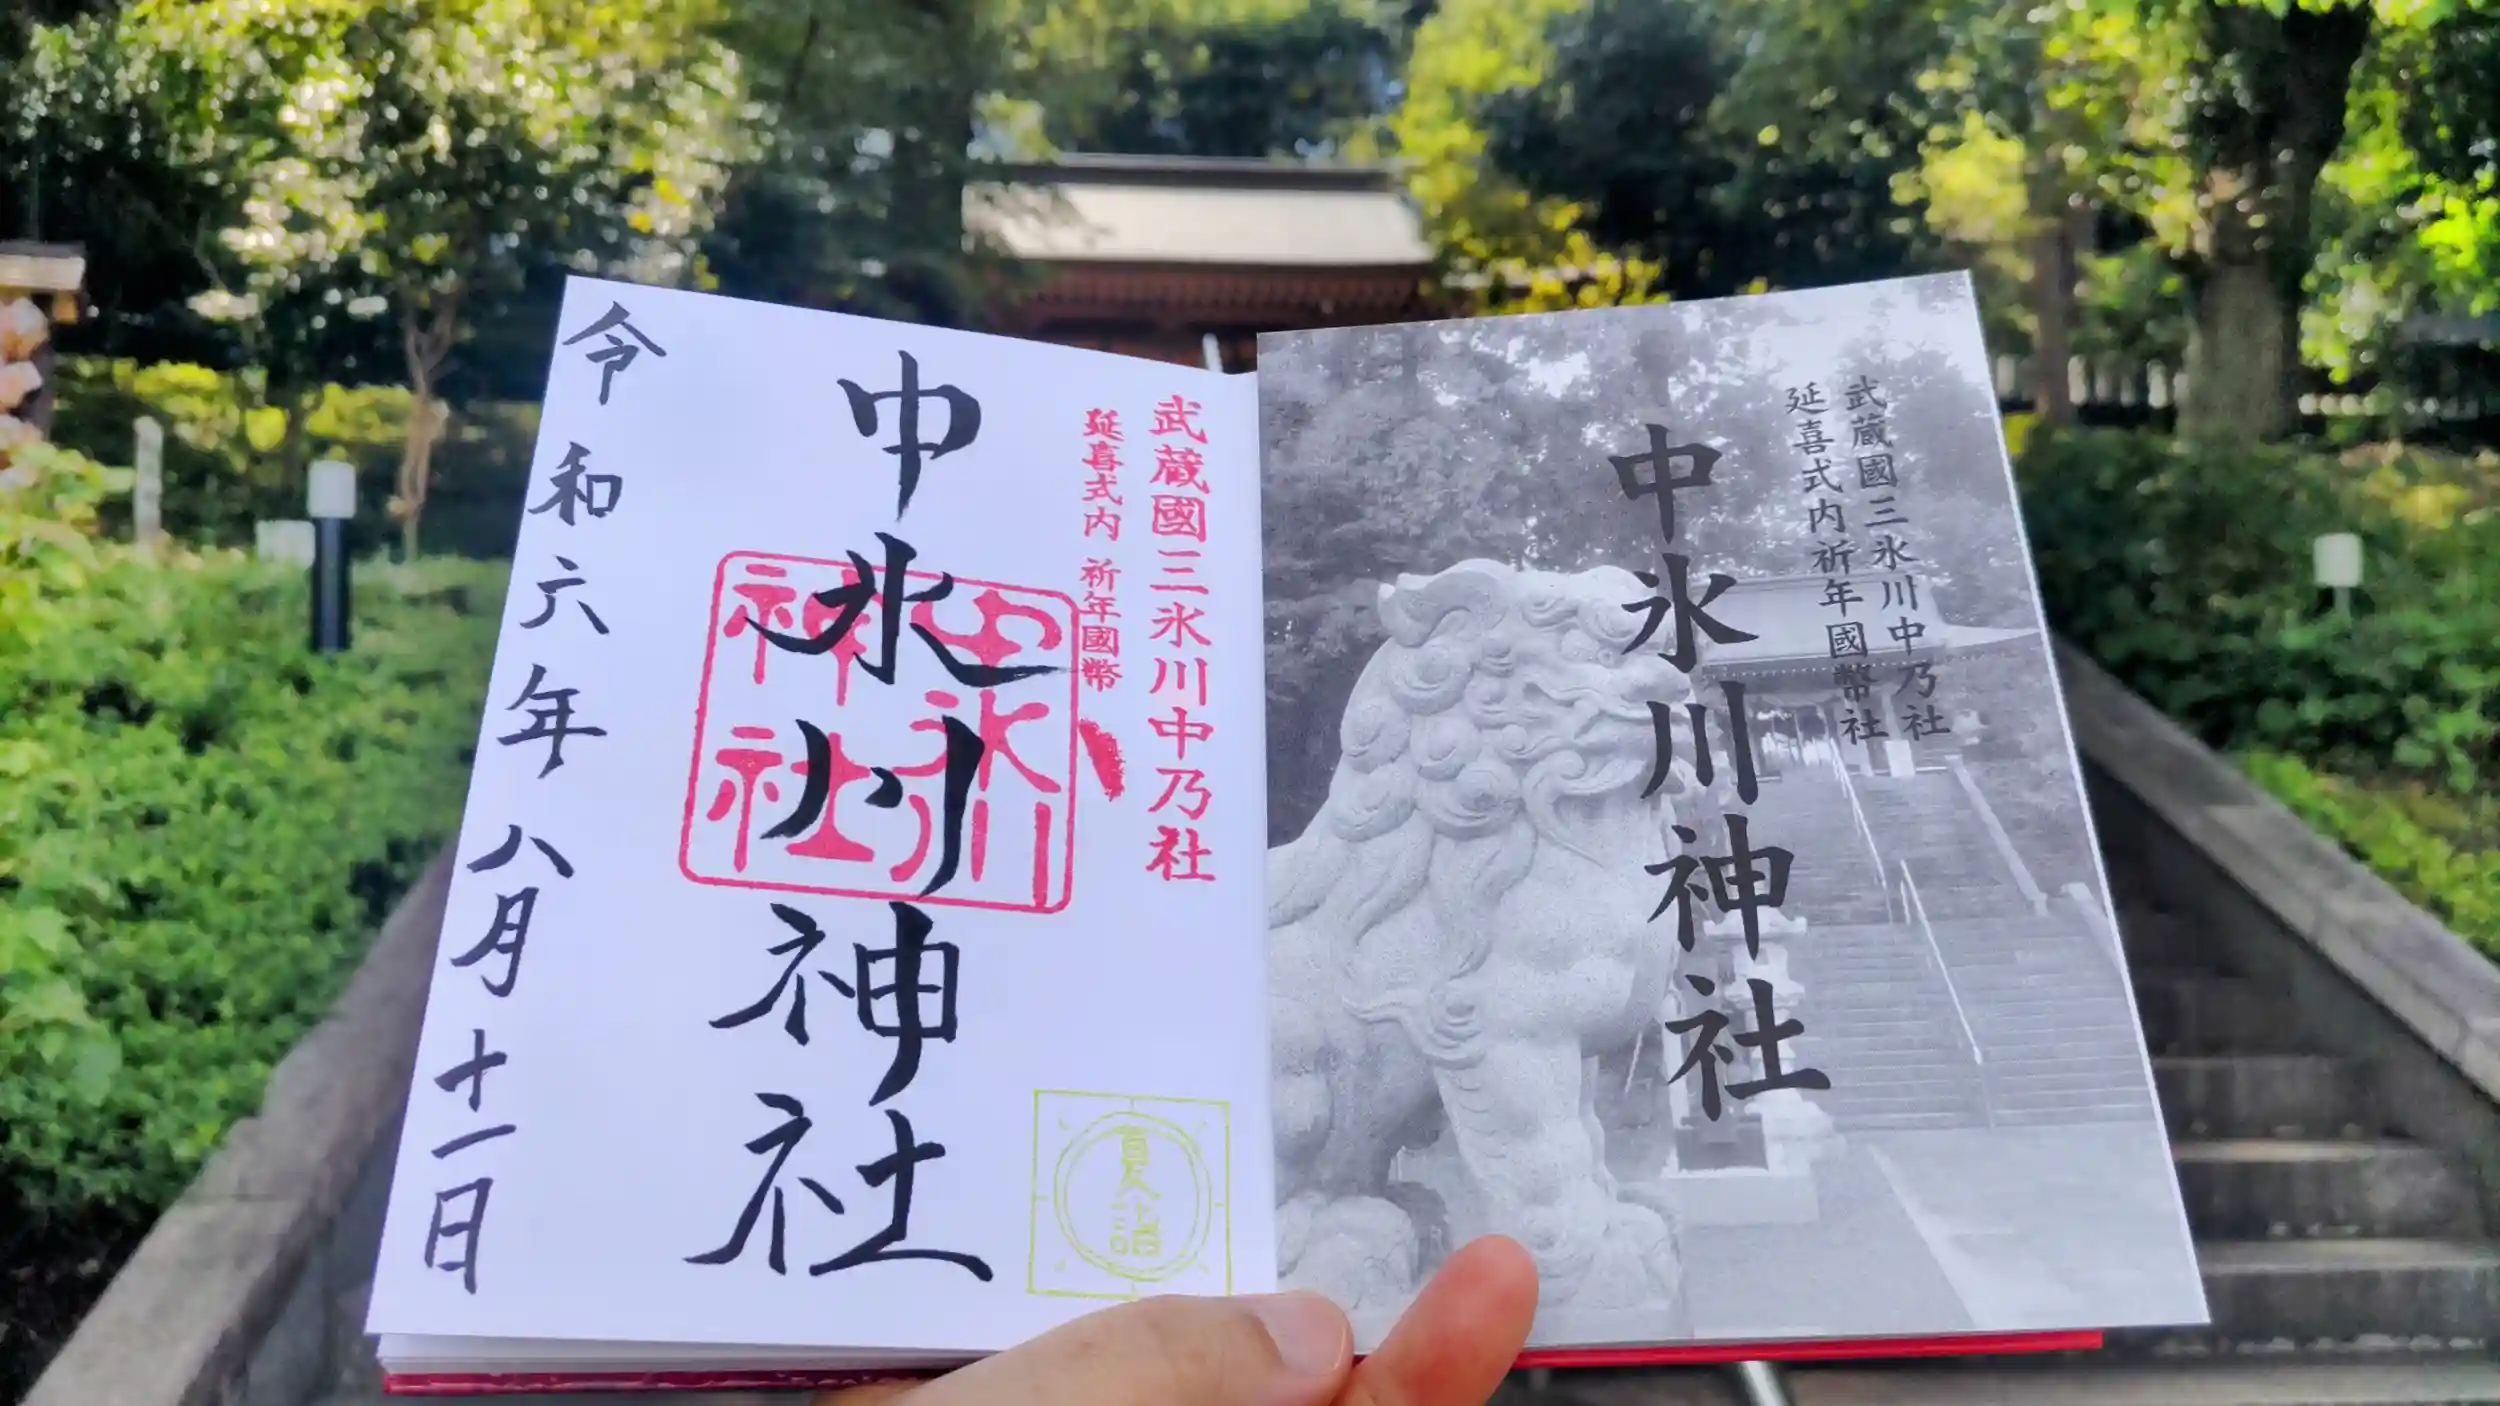 武蔵國三氷川中乃社
延喜式内 祈年國幣
中氷川神社
中氷川神社
令和六年八月十一日
夏詣
武蔵國三氷川中乃社
延喜式内祈年國幣社
中氷川神社